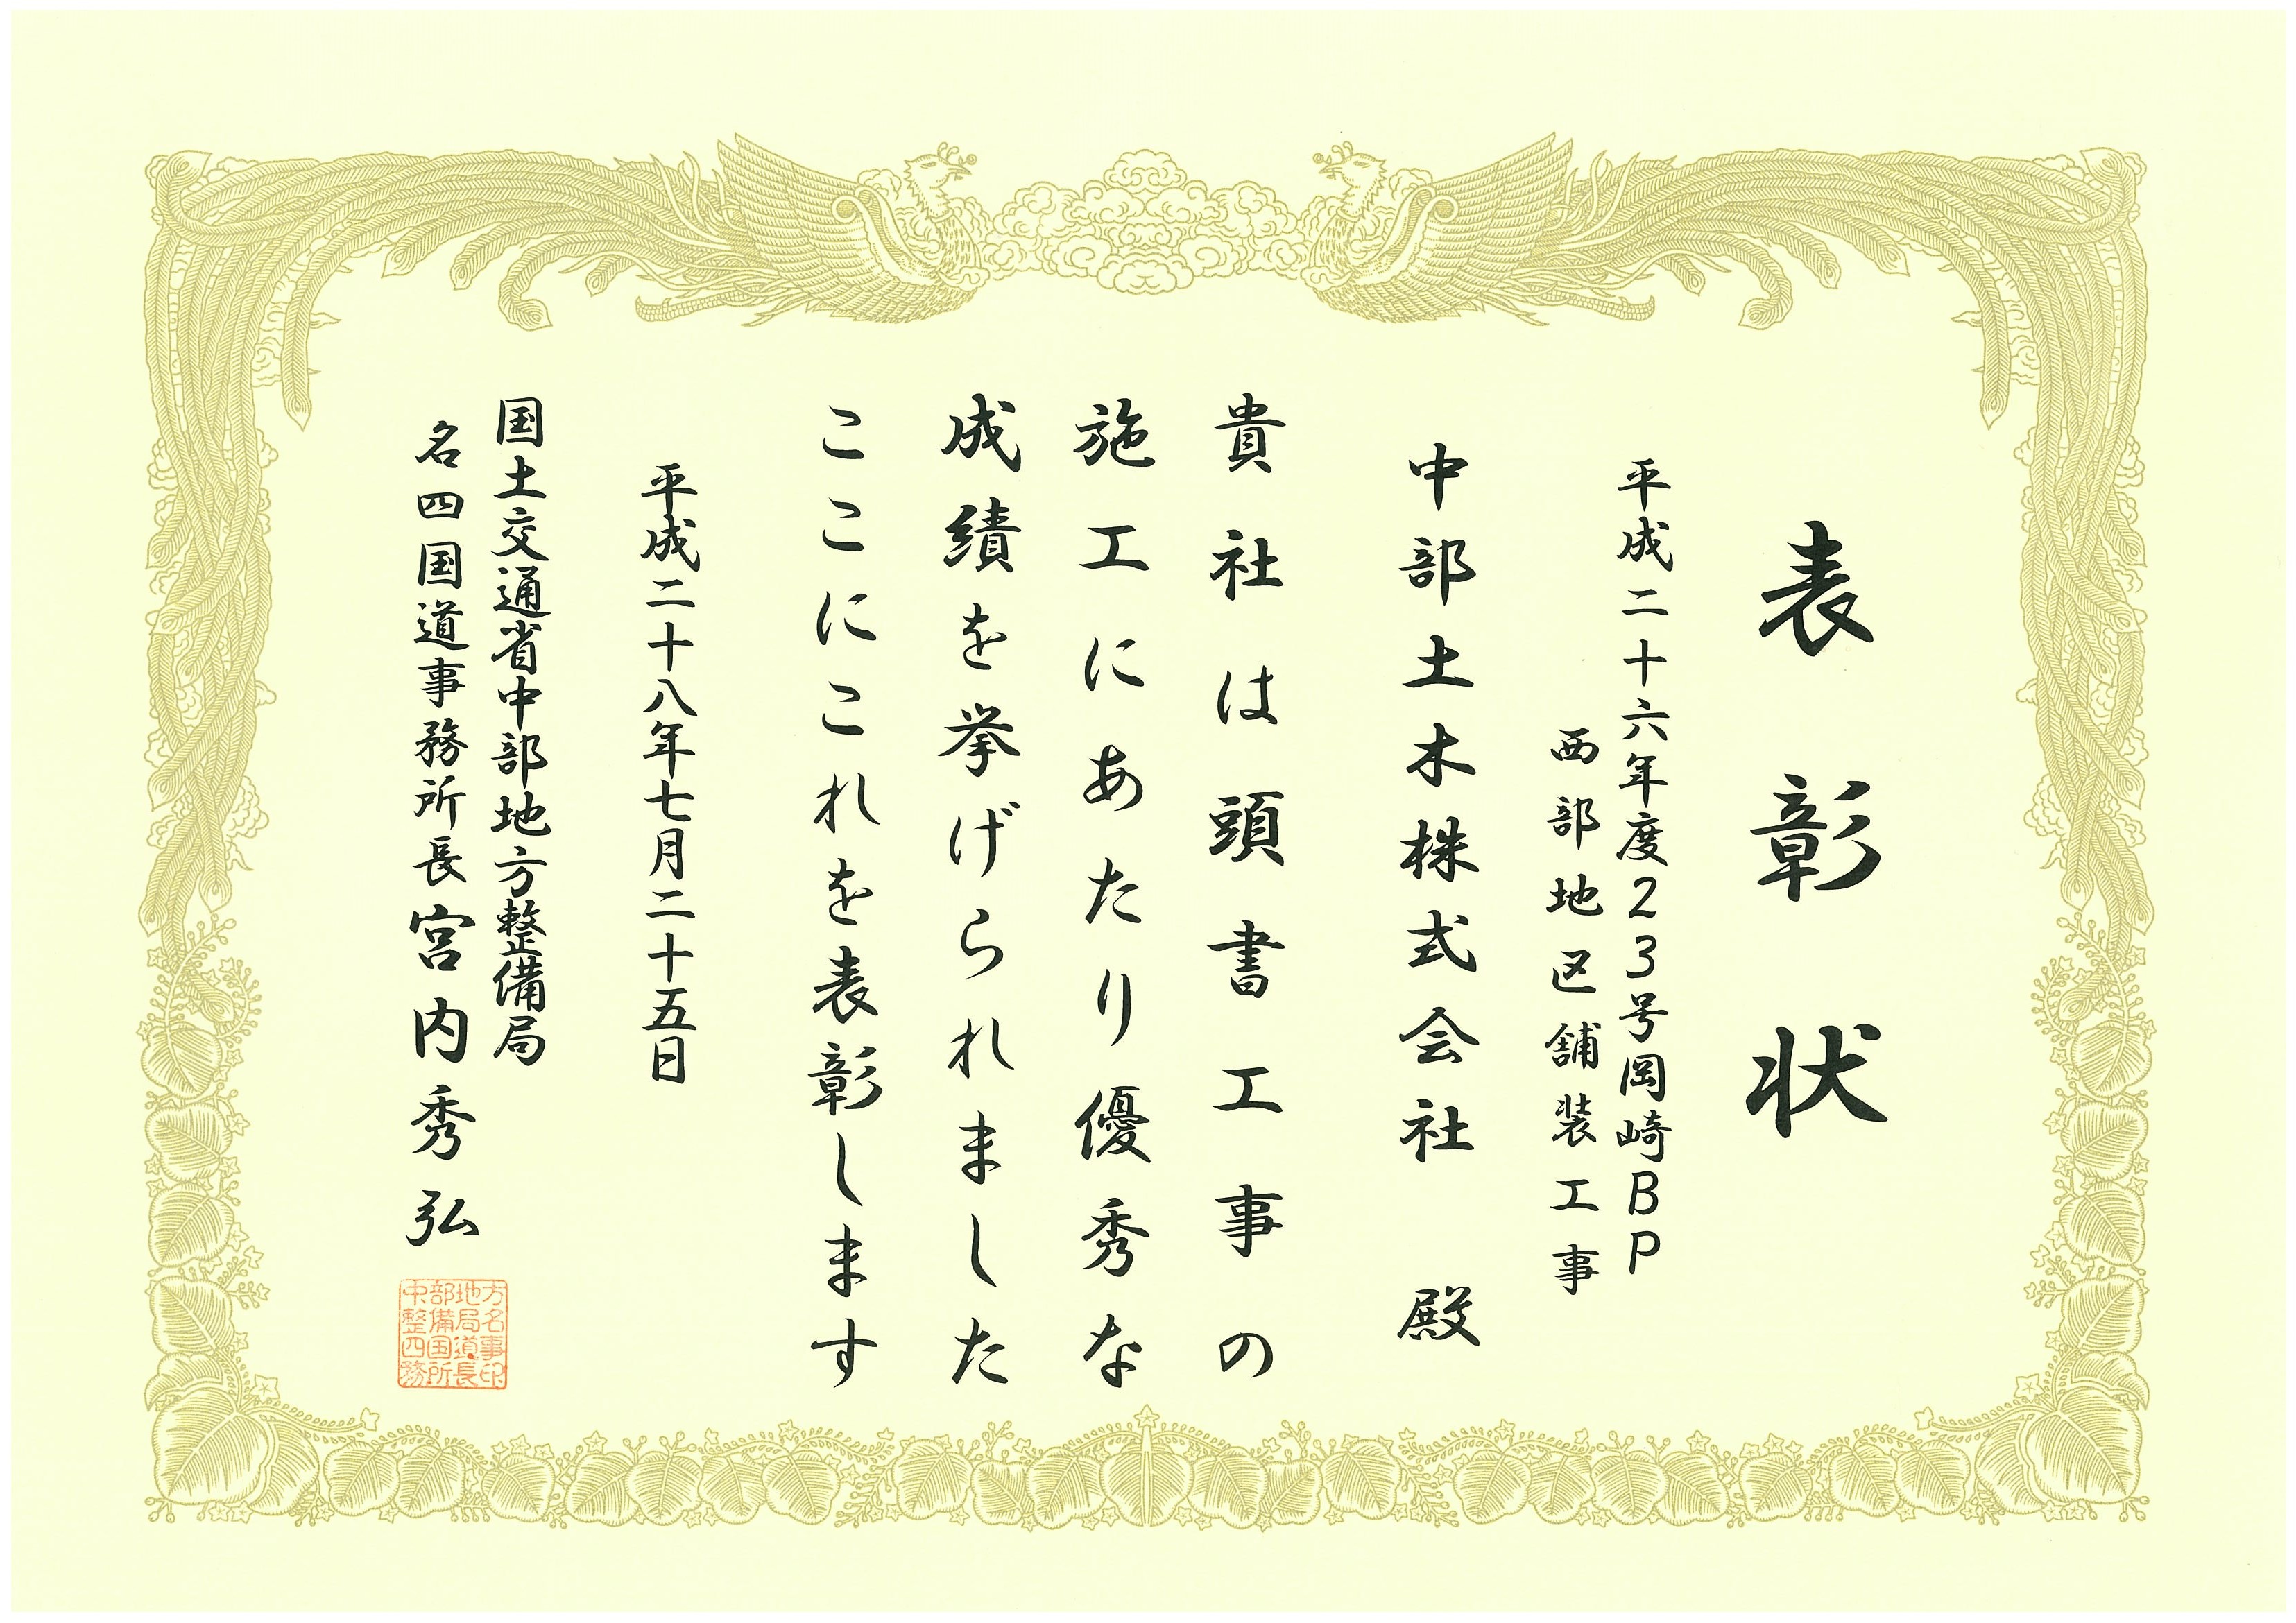 表彰状
平成二十六年度２３号岡崎ＢＰ
西部地区舗装工事
中部土木株式会社 殿
貴社は頭書工事の
施工にあたり優秀な
成績を挙げられました
ここにこれを表彰します
平成二十八年七月二十五日
国土交通省中部地方整備局
名四国道事務所長 宮内秀弘
中部地方
整備局名
四国道事
務所長印